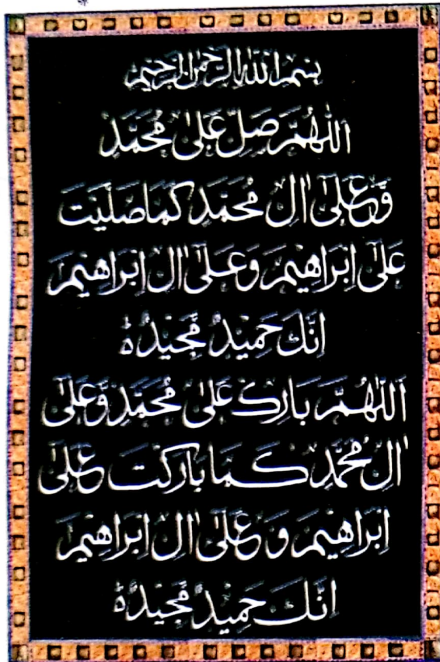 بسم الله الرحمن الرحيم
اَللّٰهُمَّ صَلِّ عَلٰى مُحَمَّدٍ
وَّعَلٰٓى اٰلِ مُحَمَّدٍ كَمَا صَلَّيْتَ
عَلٰٓى اِبْرَاهِيْمَ وَعَلٰٓى اٰلِ اِبْرَاهِيْمَ
اِنَّكَ حَمِيْدٌ مَّجِيْدٌ ۃ
اَللّٰهُمَّ بَارِكْ عَلٰى مُحَمَّدٍ وَّعَلٰٓى
اٰلِ مُحَمَّدٍ كَمَا بَارَكْتَ عَلٰٓى
اِبْرَاهِيْمَ وَعَلٰٓى اٰلِ اِبْرَاهِيْمَ
اِنَّكَ حَمِيْدٌ مَّجِيْدٌ ۃ